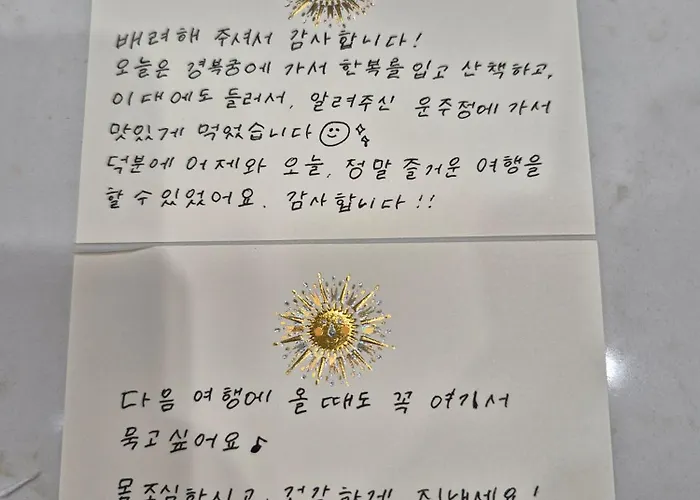 배려해 주셔서 감사합니다!
오늘은 경복궁에 가서 한복를 입고 산책하고,
이대에도 들러서, 알려주신 운주정에 가서
맛있게 먹었습니다
덕분에 어제와 오늘, 정말 즐거운 여행을
할 수 있었어요. 감사합니다!!
다음 여행에 올 때도 꼭 여기서
묵고싶어요♪
몸 조심하시고, 건강하게 지내세요!